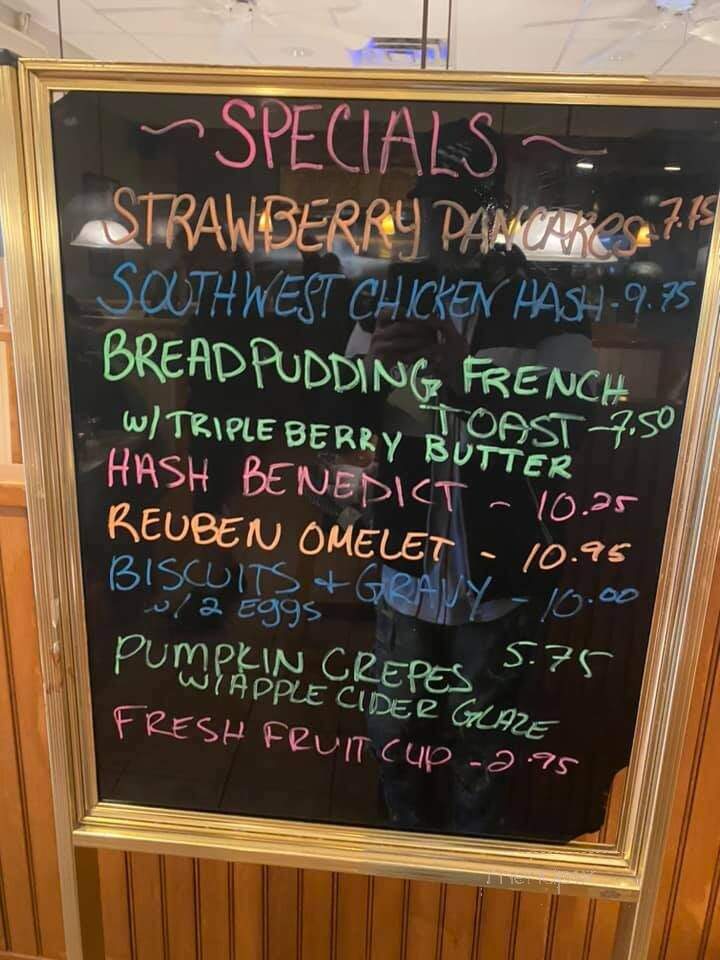 ~ SPECIALS ~
STRAWBERRY PANCAKES - 7.75
SOUTHWEST CHICKEN HASH - 9.75
BREAD PUDDING FRENCH
TOAST - 7.50
W/ TRIPLE BERRY BUTTER
HASH BENEDICT - 10.25
REUBEN OMELET - 10.95
BISCUITS + GRAVY - 10.00
w/ 2 EggS
PUMPKIN CREPES 5.75
W/ APPLE CIDER GLAZE
FRESH FRUIT CUP - 2.95